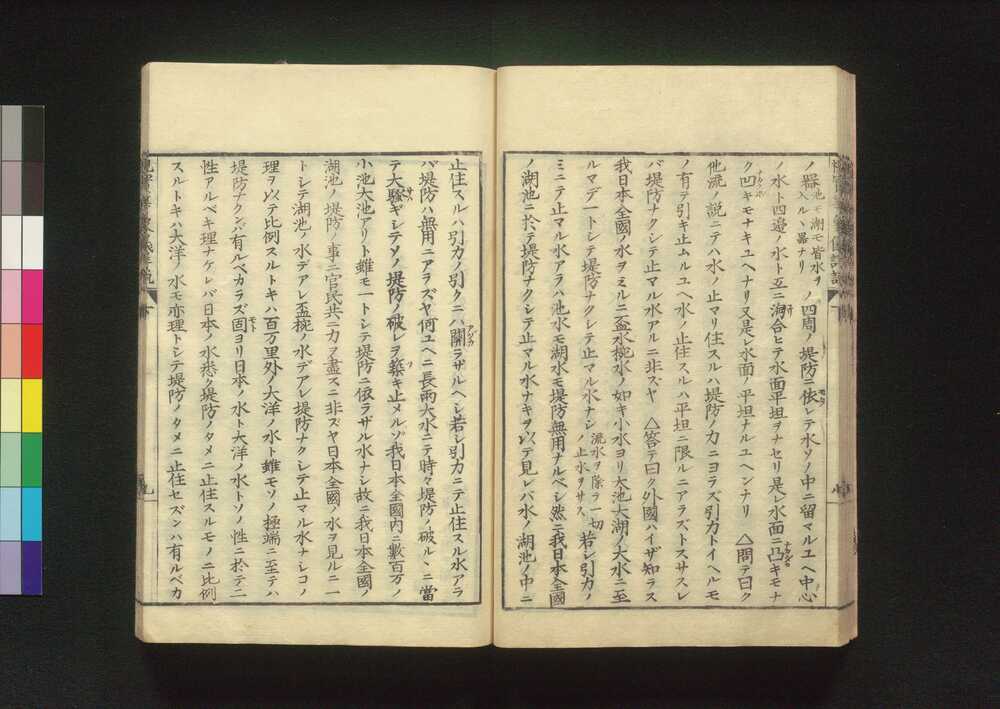 ノ器 池モ湖モ皆水ヲ入ルヽ器ナリ ノ四周ノ堤防ニ依レテ水ソノ中ニ留マルユヘ中心
ノ水ト四邉ノ水ト互ニ洶合ヒテ水面平坦ヲナセリ是レ水面ニ凸キモナ
ク凹キモナキユヘナリ又是レ水面ノ平坦ナルユヘンナリ △問テ曰ク
他流ノ説ニテハ水ノ止マリ住スルハ堤防ノ力ニヨラズ引力トイヘルモ
ノ有ヲ引キ止ムルユヘ水ノ止住スルハ平坦ニ限ルニアラズトスサスレ
バ堤防ナクシテ止マル水アルニ非ズヤ △答テ曰ク外國ハイザ知ラス
我日本全國ノ水ヲミルニ盃水椀水ノ如キ小水ヨリ大池大湖ノ大水ニ至
ルマデ一トシテ堤防ナクシテ止マル水ナシ 流水ヲ除ラ一切ノ止水ヲサス 若シ引力ノ
ミニテ止マル水アラハ池水モ湖水モ堤防無用ナルベシ然ニ我日本全國
ノ湖池ニ於テ堤防ナクシテ止マル水ナキヲ以テ見レバ水ノ湖池ノ中ニ
止住スルハ引力ノ引クニハ關ラザルヘシ若シ引力ニテ止住スル水アラ
バ堤防ハ無用ニアラズヤ何ユヘニ長雨大水ニテ時々堤防ノ破ルヽニ當
テ大騒ギシテソノ堤防ノ破レヲ築キ止メルゾ我日本全國内ニ數百万ノ
小池大池アリト雖モ一トシテ堤防ニ依ラザル水ナシ故ニ我日本全國ノ
湖池ノ堤防ノ事ニ官民共ニ力ヲ盡スニ非ズヤ日本全國ノ水ヲ見ルニ一
トシテ湖池ノ水デアレ盃椀ノ水デアレ堤防ナクシテ止マル水ナシコノ
理ヲ以テ比例スルトキハ百万里外ノ大洋ノ水ト雖モソノ極端ニ至テハ
堤防ナクンバ有ルベカラズ固ヨリ日本ノ水ト大洋ノ水トソノ性ニ於テ二
性アルベキ理ナケレバ日本ノ水悉ク堤防ノタメニ止住スルモノニ比例
スルトキハ大洋ノ水モ亦理トシテ堤防ノタメニ止住セズンハ有ルベカ